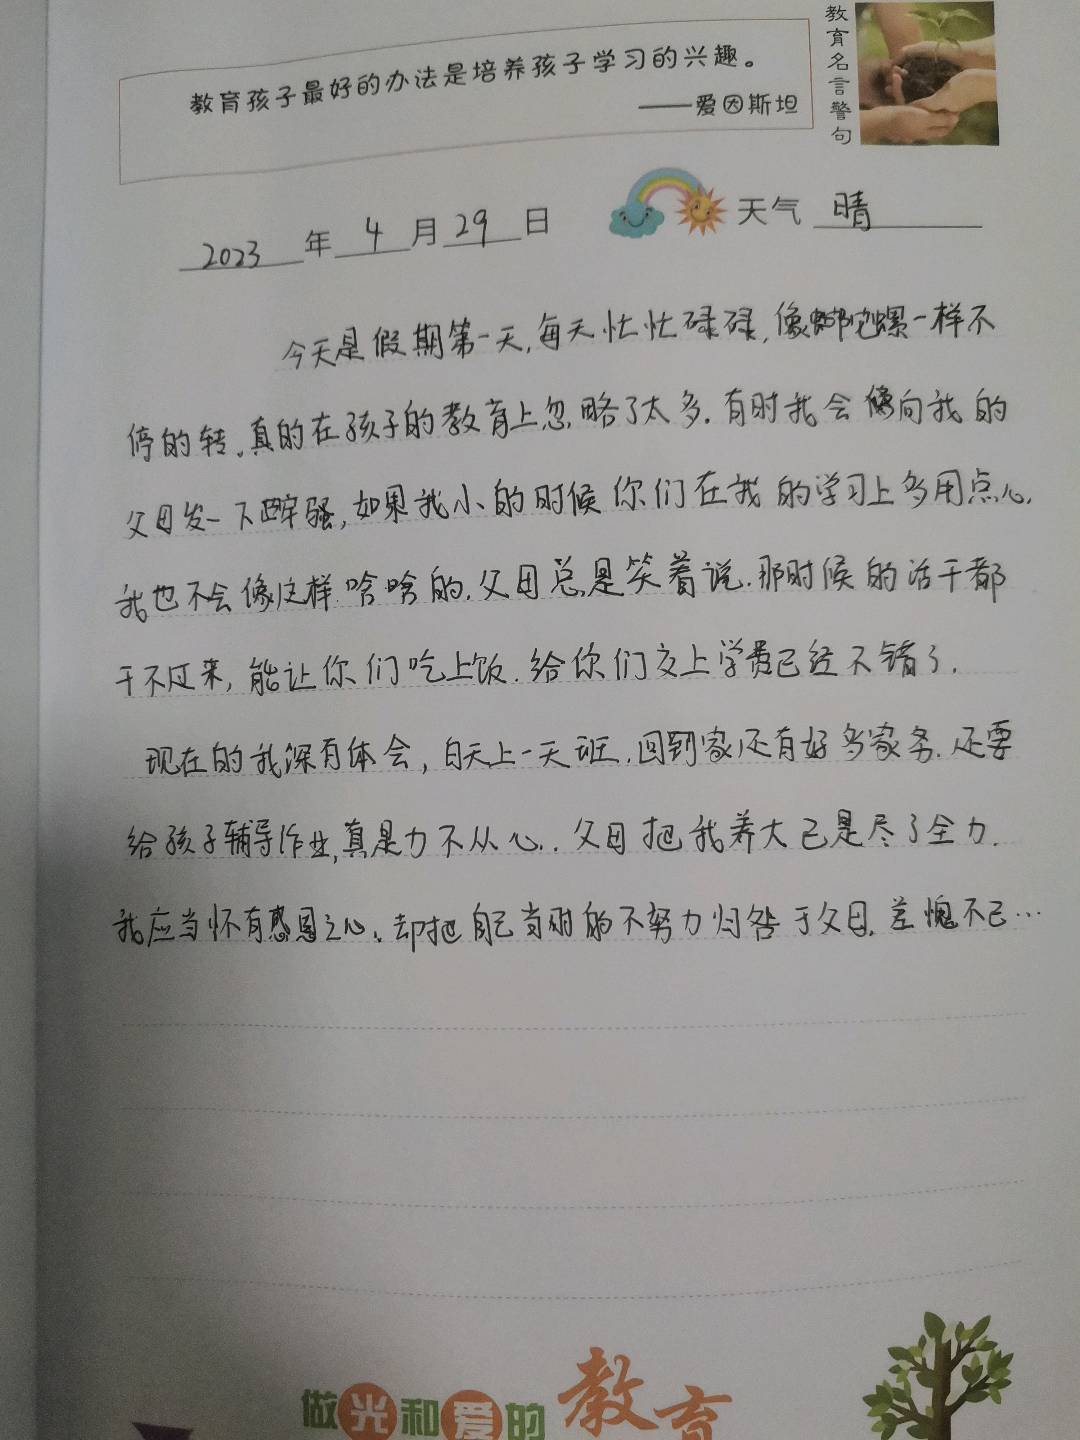 教育孩子最好的办法是培养孩子学习的兴趣。
——爱因斯坦
教育名言警句
2023 年 4 月 29 日 天气 晴
今天是假期第一天,每天忙忙碌碌,像陀螺一样不
停的转。真的在孩子的教育上忽略了太多.有时我会向我的
父母发一下牢骚,如果我小的时候你们在我的学习上多用点心,
我也不会像这样啥啥的.父母总是笑着说.那时候的活干都
干不过来,能让你们吃上饭.给你们交上学费已经不错了.
现在的我深有体会,白天上一天班.回到家还有好多家务.还要
给孩子辅导作业,真是力不从心..父母把我养大已是尽了全力.
我应当怀有感恩之心、却把自己当时的不努力归咎于父母.羞愧不已…
做光和爱的教育